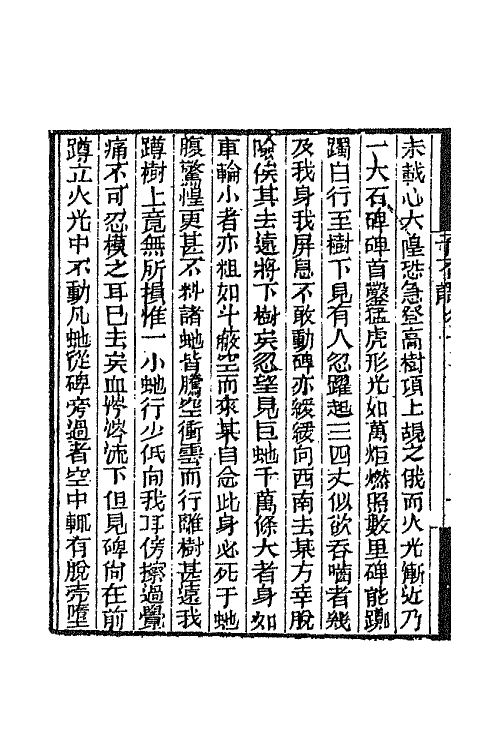 未載心大惶恐急登高樹項上覘之俄而火光漸近乃
一大石碑碑首鑿猛虎形光如萬炬燃照數里碑能躑
躅自行至樹下見有人忽躍起三四丈似欲吞嚙者幾
及我身我屏息不敢動碑亦緩緩向西南去某方幸脫
險俟其去遠將下樹矣忽望見巨虵千萬條大者身如
車輪小者亦粗如斗蔽空而來某自念此身必死于虵
腹驚惶更甚不料諸虵皆騰空衝雲而行離樹甚遠我
蹲樹上竟無所損惟一小虵行少低向我耳傍擦過覺
痛不可忍模之耳已去矣血涔涔流下但見碑尚在前
蹲立火光中不動凡虵從碑旁過者空中輒有脫売墮